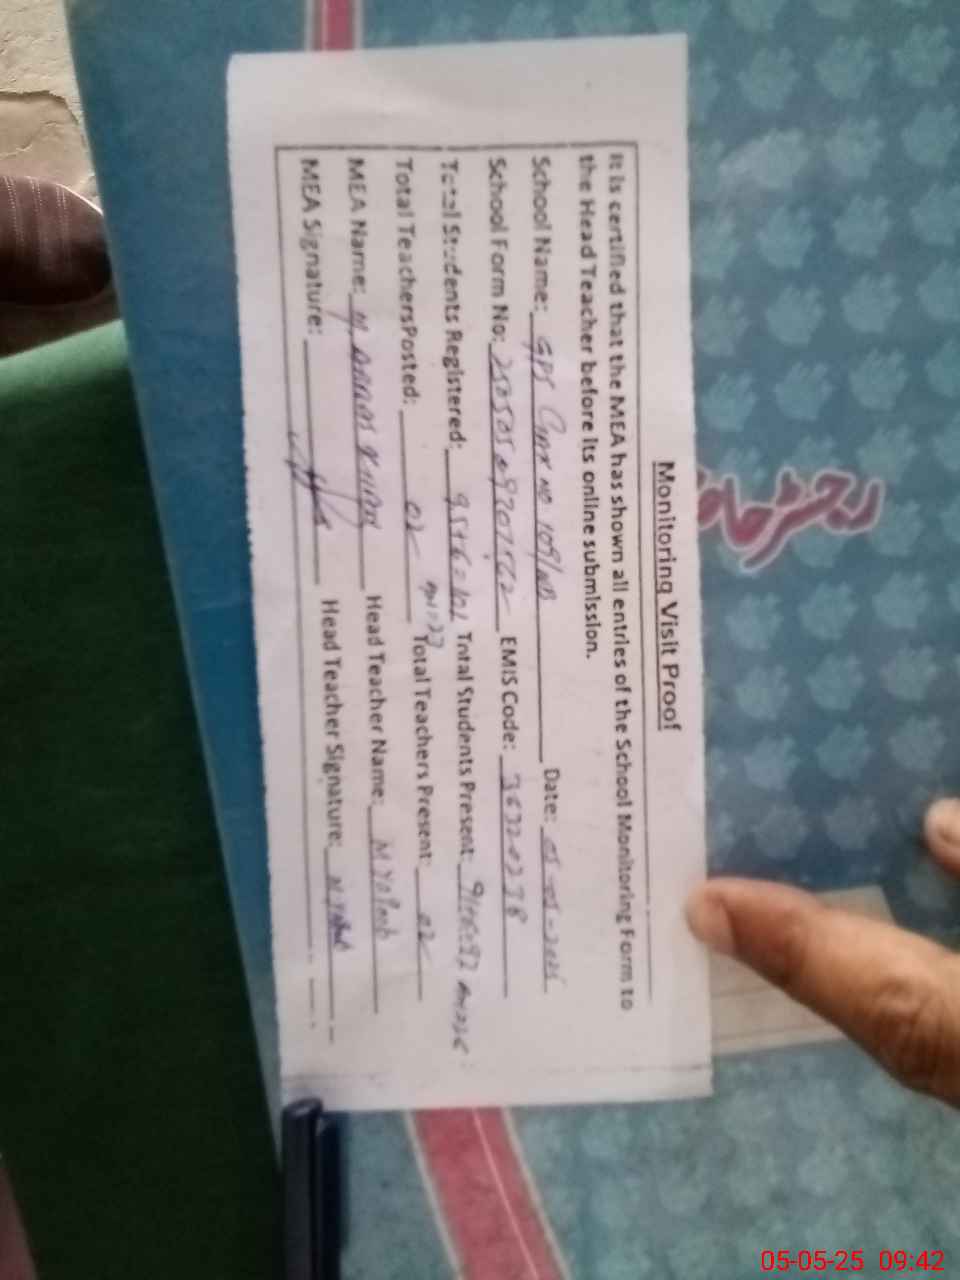 Monitoring Visit Proof
It is certified that the MEA has shown all entries of the School Monitoring Form to
the Head Teacher before its online submission.
School Name: GPS NO 109/NB Date: 05-05-2025
School Form No: EMIS Code: 36320278
Total Students Registered: 95+6=101 Total Students Present: 91+6=97
Total Teachers Posted: 02 Total Teachers Present: 02
MEA Name: M. Head Teacher Name: M
MEA Signature: Head Teacher Signature:
رجسٹر
05-05-25 09:42